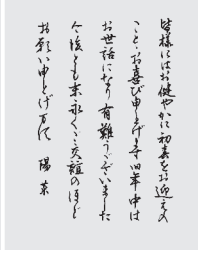 皆様にはお健やかに初春をお迎えの
こととお喜び申し上げます旧年中は
お世話になり有難うございました
今後とも末永くご交誼のほど
お願い申し上げます 陽